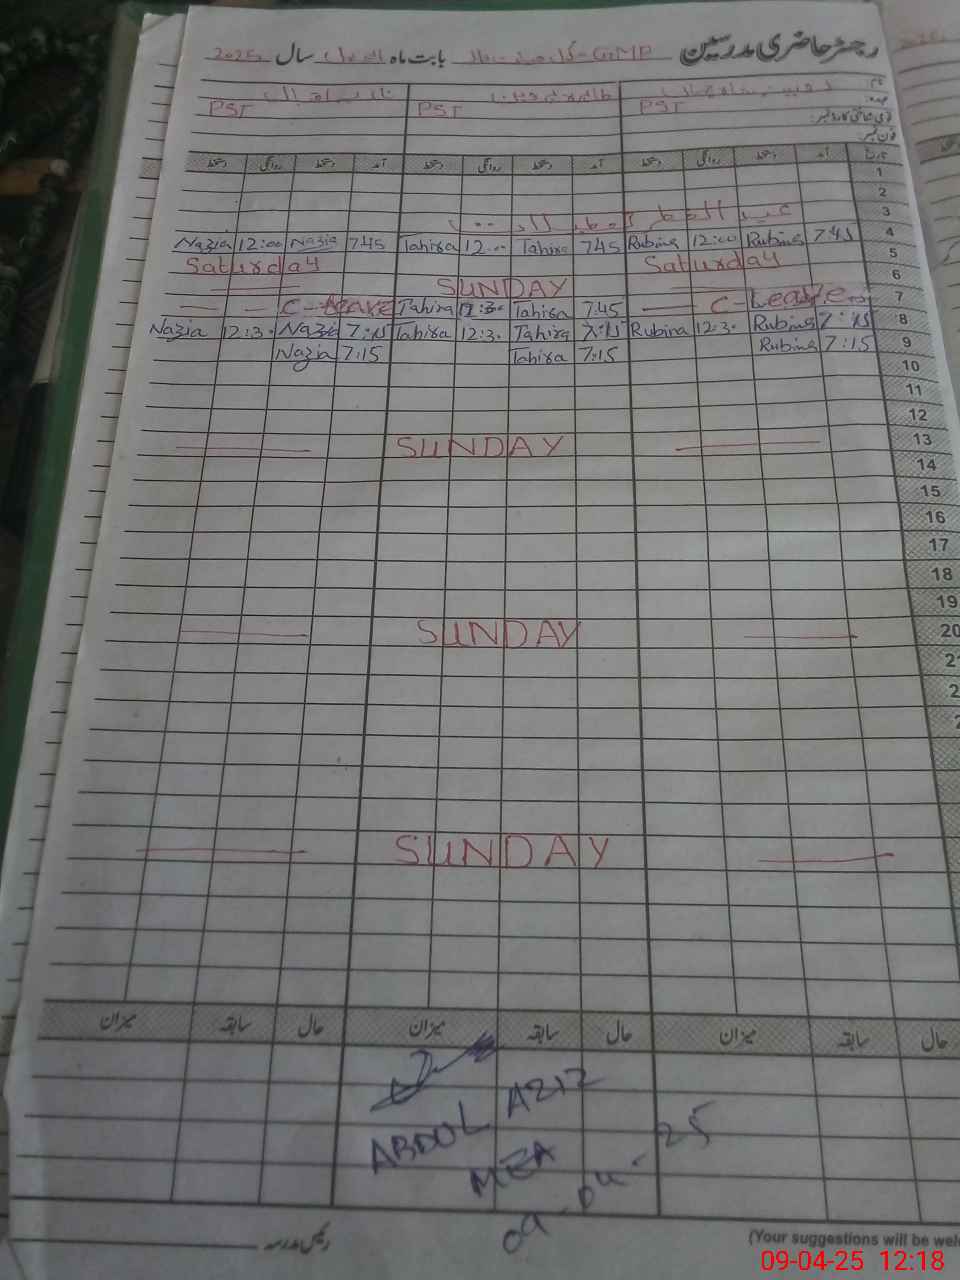 رجسٹر حاضری مدرسین GMP بابت ماہ اپریل سال 2025
نام
عہدہ PST PST PST
قومی شناختی کارڈ نمبر:
فون نمبر:
تاریخ آمد دستخط روانگی دستخط آمد دستخط روانگی دستخط آمد دستخط روانگی دستخط
1
2
3 عید الفطر
Nazia 12:00 Nazia 745 Tahira 12.00 Tahira 745 Rubina 12:00 Rubina 745 4
Saturday Saturday 5
SUNDAY 6
C-Leave Tahira 12:30 Tahira 7.45 C-Leave 7
Nazia 12:30 Nazia 7:15 Tahira 12:30 Tahira 7:15 Rubina 12:30 Rubina 7:15 8
Nazia 7:15 Tahira 7:15 Rubina 7:15 9
10
11
12
SUNDAY 13
14
15
16
17
18
19
SUNDAY 20
SUNDAY
حال سابقہ میزان حال سابقہ میزان حال سابقہ میزان
ABDUL AZIZ
MEA
09-04-25
رئیس مدرسہ
(Your suggestions will be wel
09-04-25 12:18